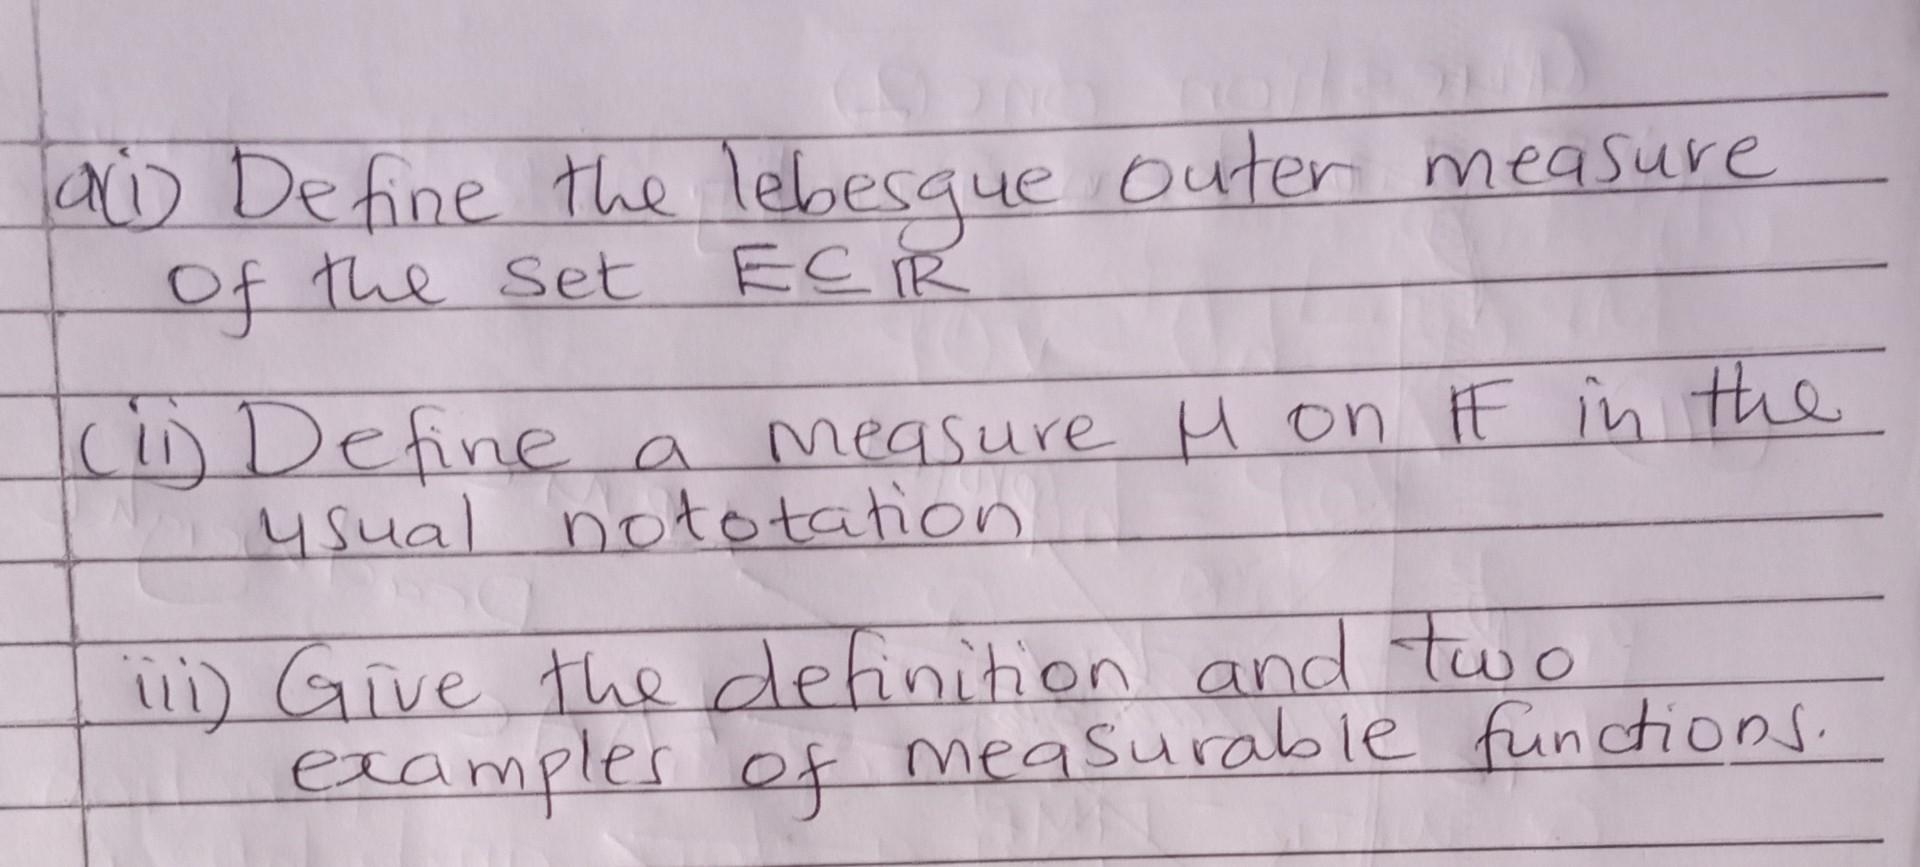 a(i) Define the lebesgue outer measure
of the set E ⊆ ℝ
(ii) Define a measure μ on 𝔽 in the
usual nototation
iii) Give the definition and two
examples of measurable functions.